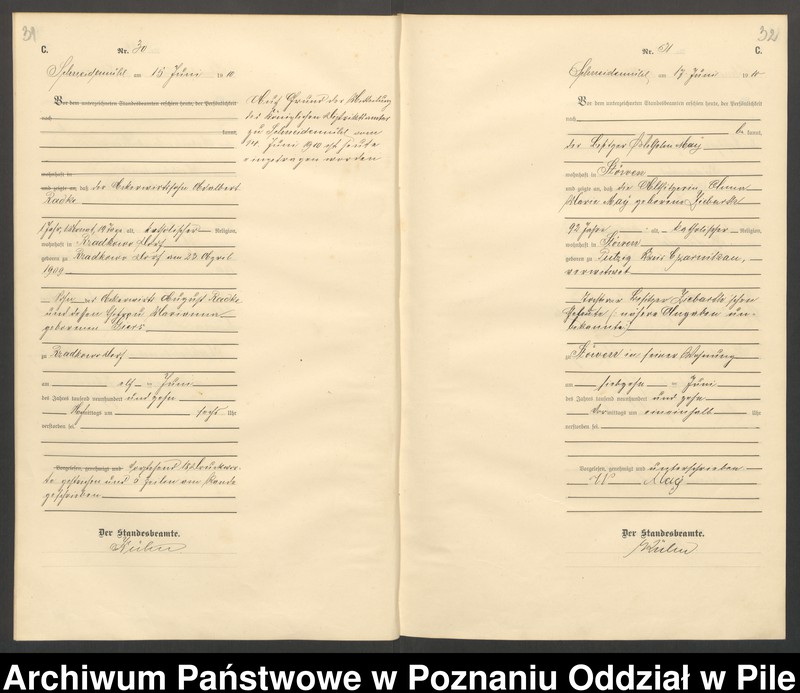 31
C.
Nr. 30
Schneidemühl am 15 Juni 1910
Vor dem unterzeichneten Standesbeamten erschien heute, der Persönlichkeit
nach
kannt,
wohnhaft in
und zeigte an, daß der Ackerwirtssohn Adalbert
Radke
1 Jahr, 1 Monat, alt, katholischer Religion,
wohnhaft in Kradkowo Dorf
geboren zu Kradkowo Dorf am 23 April
1909
Sohn des Ackerwirts August Radke
und dessen Ehefrau Marianna
geborenen
zu Kradkowo Dorf
am elf ten Juni
des Jahres tausend neunhundert und zehn
mittags um sechs Uhr
verstorben sei
Vorgelesen, genehmigt und Vorstehend Druckwor-
te gestrichen und 5 Zeilen am Rande
geschrieben
Der Standesbeamte.
Kühn
Auf Grund der Mitteilung
des Königlichen Distriktsamtes
zu Schneidemühl vom
14 Juni 1910 ist heute
eingetragen worden
32
Nr. 31
C.
Schneidemühl am 17 Juni 1910
Vor dem unterzeichneten Standesbeamten erschien heute, der Persönlichkeit
nach
be kannt,
der Besitzer Wilhelm May
wohnhaft in Stöwen
und zeigte an, daß die Altsitzerin
Marie May geborene Ziebarth
92 Jahre alt, katholischer Religion,
wohnhaft in Stöwen
geboren zu Putzig Kreis Czarnikau,
verwitwet
Tochter Besitzer Ziebarth'schen
Eheleute (nähere Angaben un-
bekannt)
zu Stöwen in seiner Wohnung
am siebzehn ten Juni
des Jahres tausend neunhundert und zehn
Vor mittags um eineinhalb Uhr
verstorben sei
Vorgelesen, genehmigt und unterschrieben
W May
Der Standesbeamte.
Kühn
Archiwum Państwowe w Poznaniu Oddział w Pile